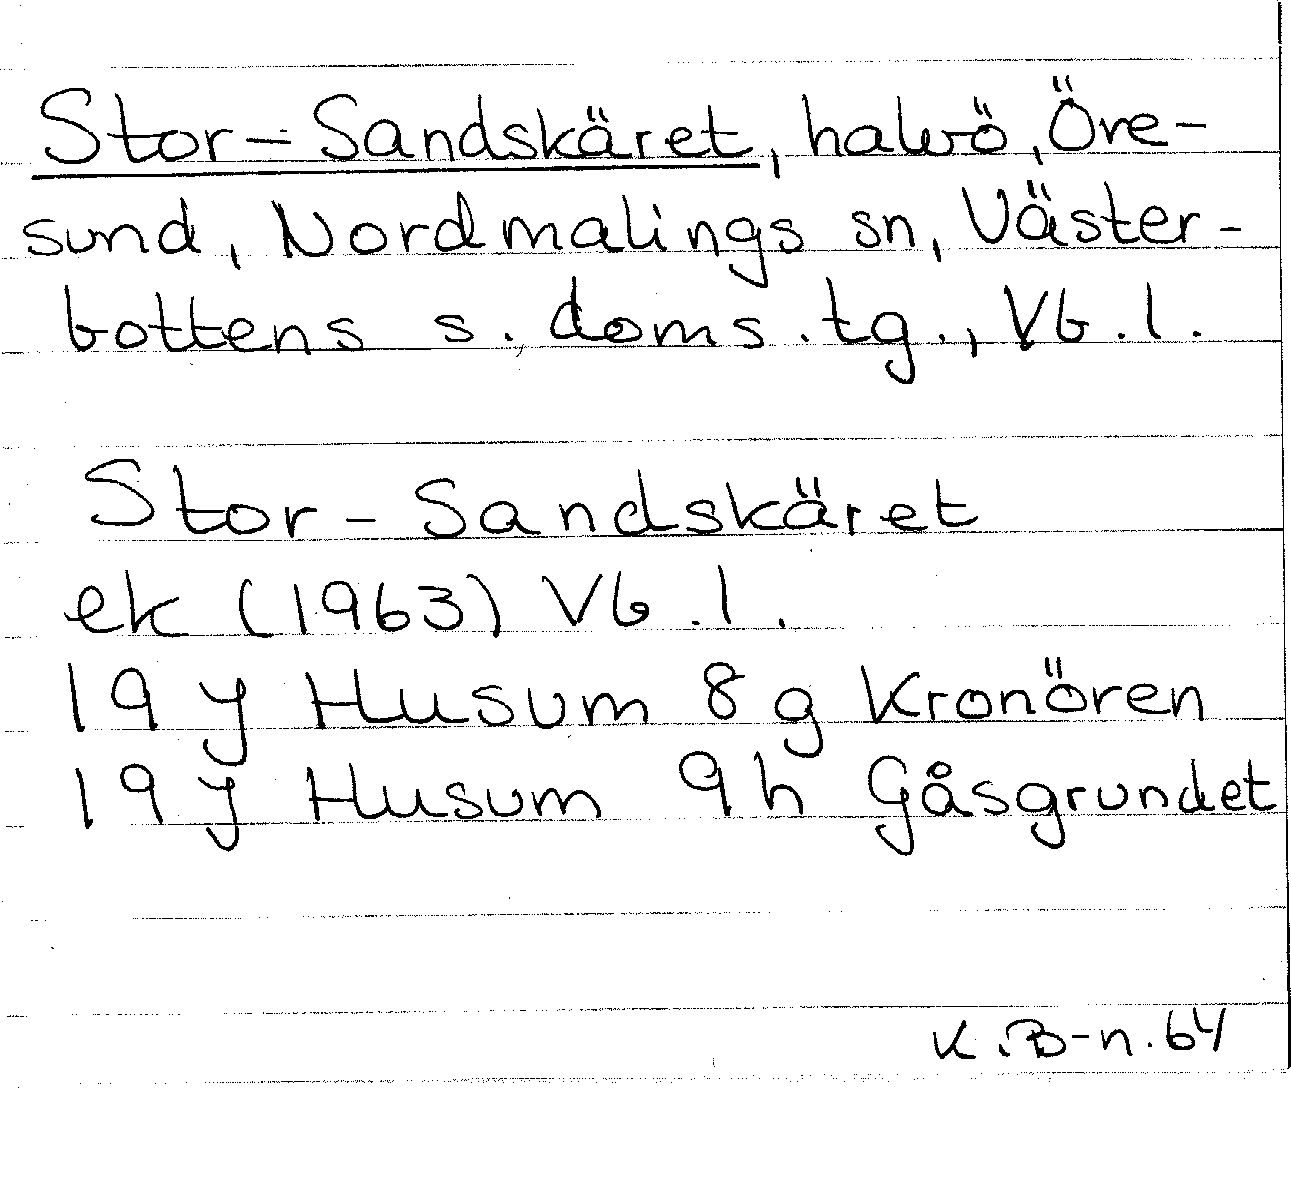 Stor-Sandskäret, halvö, Öre-
sund, Nordmalings sn, Väster-
bottens s. doms. tg., Vb. l.
Stor-Sandskäret
ek (1963) Vb. l.
19 J Husum 8 g Kronören
19 J Husum 9h Gåsgrundet
K. B-n. 64